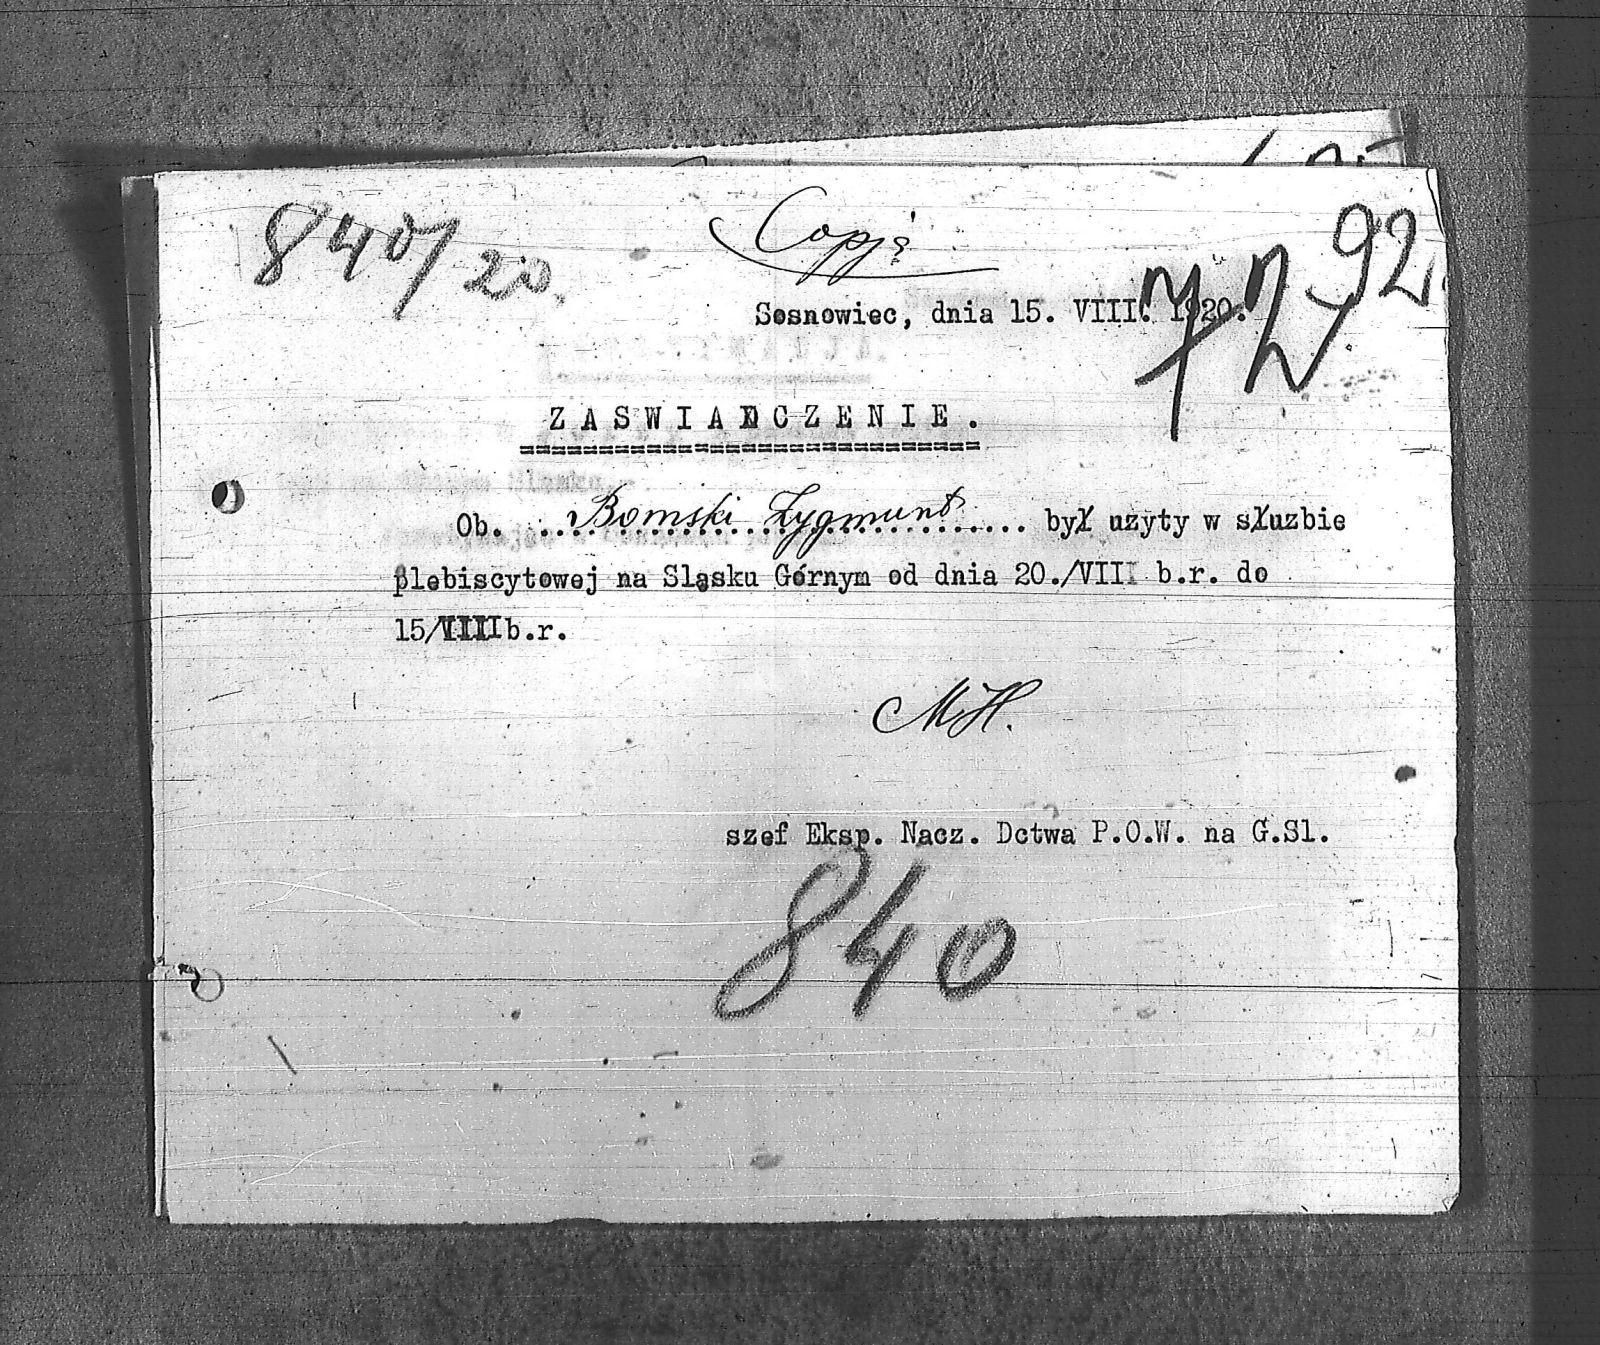 840/20.
Copja
92.
72
Sosnowiec, dnia 15. VIII. 1920.
ZASWIADCZENIE.
==============================
Ob. Bomski Zygmunt był uzyty w służbie
plebiscytowej na Sląsku Górnym od dnia 20./VII b.r. do
15/VIII b.r.
MH.
szef Eksp. Nacz. Dctwa P.O.W. na G.Sl.
840